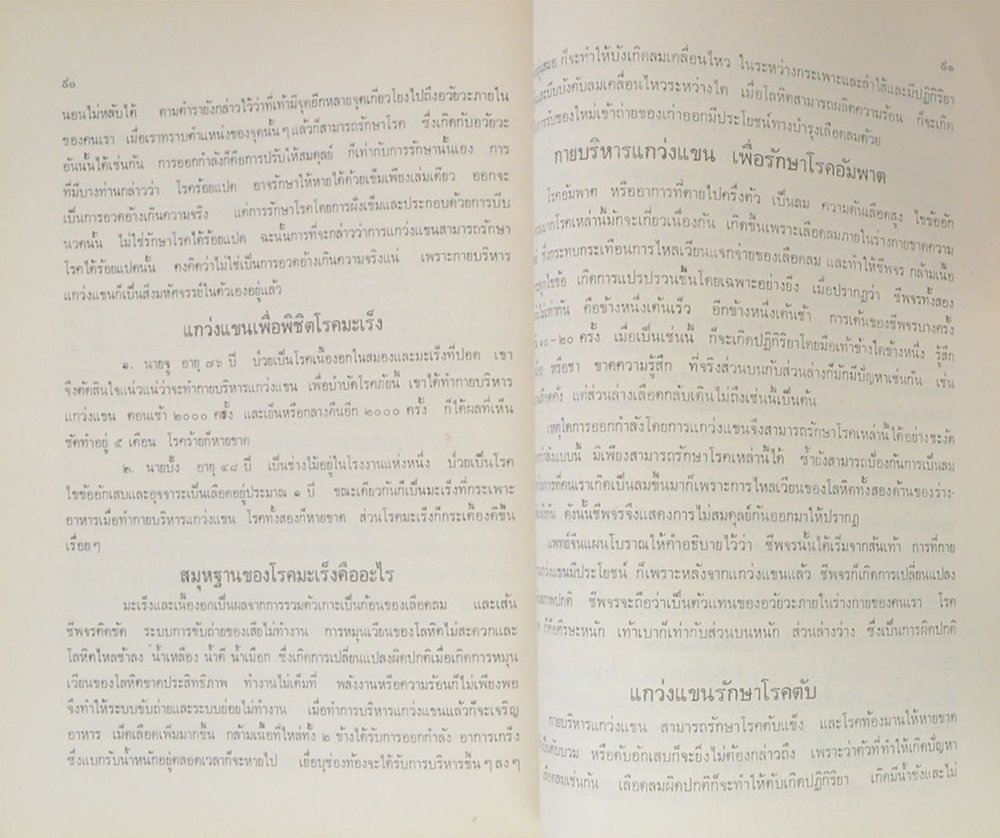 ๙๐
นอนไม่หลับได้ ตามตำรายังกล่าวไว้ว่าที่เท้ามีจุดอีกหลายจุดเกี่ยวโยงไปถึงอวัยวะภายใน
ของคนเรา เมื่อเราทราบตำแหน่งของจุดนั้นๆแล้วก็สามารถรักษาโรค ซึ่งเกิดกับอวัยวะ
อันนั้นได้เช่นกัน การออกกำลังก็คือการปรับให้สมดุลย์ ก็เท่ากับการรักษานั้นเอง การ
ที่มีบางท่านกล่าวว่า โรคร้อยแปด อาจรักษาให้หายได้ด้วยเข็มเพียงเล่มเดียว ออกจะ
เป็นการอวดอ้างเกินความจริง แต่การรักษาโรคโดยการฝังเข็มและประกอบด้วยการบีบ
นวดนั้น ไม่ใช่รักษาโรคได้ร้อยแปด ฉะนั้นการที่จะกล่าวว่าการแกว่งแขนสามารถรักษา
โรคได้ร้อยแปดนั้น คงคิดว่าไม่ใช่เป็นการอวดอ้างเกินความจริงแน่ เพราะกายบริหาร
แกว่งแขนก็เป็นสิ่งมหัศจรรย์ในตัวเองอยู่แล้ว
แกว่งแขนเพื่อพิชิตโรคมะเร็ง
๑. นายจู อายุ ๗๖ ปี ป่วยเป็นโรคเนื้องอกในสมองและมะเร็งที่ปอด เขา
จึงตัดสินใจแน่วแน่ว่าจะทำกายบริหารแกว่งแขน เพื่อบำบัดโรคภัยนี้ เขาได้ทำกายบริหาร
แกว่งแขน ตอนเช้า ๒๐๐๐ ครั้ง และเย็นหรือกลางคืนอีก ๒๐๐๐ ครั้ง ก็ได้ผลที่เห็น
ชัดทำอยู่ ๕ เดือน โรคร้ายก็หายขาด
๒. นายบั้ง อายุ ๔๘ ปี เป็นช่างไม้อยู่ในโรงงานแห่งหนึ่ง ป่วยเป็นโรค
ไขข้ออักเสบและอุจจาระเป็นเลือดอยู่ประมาณ ๑ ปี ขณะเดียวกันก็เป็นมะเร็งที่กระเพาะ
อาหารเมื่อทำกายบริหารแกว่งแขน โรคทั้งสองก็หายขาด ส่วนโรคมะเร็งก็กระเตื้องดีขึ้น
เรื่อยๆ
สมุหฐานของโรคมะเร็งคืออะไร
มะเร็งและเนื้องอกเป็นผลจากการรวมตัวเกาะเป็นก้อนของเลือดลม และเส้น
ชีพจรติดขัด ระบบการขับถ่ายของเสียไม่ทำงาน การหมุนเวียนของโลหิตไม่สะดวกและ
โลหิตไหลช้าลง น้ำเหลือง น้ำดี น้ำเมือก ซึ่งเกิดการเปลี่ยนแปลงผิดปกติเมื่อเกิดการหมุน
เวียนของโลหิตขาดประสิทธิภาพ ทำงานไม่เต็มที่ พลังงานหรือความร้อนก็ไม่เพียงพอ
จึงทำให้ระบบขับถ่ายและระบบย่อยไม่ทำงาน เมื่อทำการบริหารแกว่งแขนแล้วก็จะเจริญ
อาหาร เม็ดเลือดเพิ่มมากขึ้น กล้ามเนื้อที่ไหล่ทั้ง ๒ ข้างได้รับการออกกำลัง อาการเกร็ง
ซึ่งแบกรับน้ำหนักอยู่ตลอดเวลาก็จะหายไป เยื่อบุช่องท้องจะได้รับการบริหารขึ้นๆลงๆ
๙๑
ก็จะทำให้บังเกิดลมเคลื่อนไหว ในระหว่างกระเพาะและลำไส้และมีปฏิกิริยา
และบีบบังคับลมเคลื่อนไหวระหว่างไต เมื่อโลหิตสามารถผลิตความร้อน ก็จะเกิด
การรับของใหม่เข้าถ่ายของเก่าออกมีประโยชน์ทางบำรุงเลือดลมด้วย
กายบริหารแกว่งแขน เพื่อรักษาโรคอัมพาต
โรคอัมพาต หรืออาการที่ตายไปครึ่งตัว เป็นลม ความดันเลือดสูง ไขข้ออัก
โรคเหล่านี้มักจะเกี่ยวเนื่องกัน เกิดขึ้นเพราะเลือดลมภายในร่างกายขาดความ
ซึ่งกระทบกระเทือนการไหลเวียนแจกจ่ายของเลือดลม และทำให้ชีพจร กล้ามเนื้อ
ไขข้อ เกิดการแปรปรวนขึ้นโดยเฉพาะอย่างยิ่ง เมื่อปรากฏว่า ชีพจรทั้งสอง
ไม่เท่ากัน คือข้างหนึ่งเต้นเร็ว อีกข้างหนึ่งเต้นช้า การเต้นของชีพจรบางครั้ง
๑๐–๒๐ ครั้ง เมื่อเป็นเช่นนี้ ก็จะเกิดปฏิกิริยาโดยมือเท้าข้างใดข้างหนึ่ง รู้สึก
หรือชา ขาดความรู้สึก ที่จริงส่วนบนกับส่วนล่างก็มักมีปัญหาเช่นกัน เช่น
แต่ส่วนล่างเลือดกลับเดินไม่ถึงเช่นนี้เป็นต้น
เหตุใดการออกกำลังโดยการแกว่งแขนจึงสามารถรักษาโรคเหล่านี้ได้อย่างชะงัด
กำลังแบบนี้ มิเพียงสามารถรักษาโรคเหล่านี้ได้ ซ้ำยังสามารถป้องกันการเป็นลม
การที่คนเราเกิดเป็นลมขึ้นมาก็เพราะการไหลเวียนของโลหิตทั้งสองด้านของร่าง-
ดังนั้นชีพจรจึงแสดงการไม่สมดุลย์กันออกมาให้ปรากฏ
แพทย์จีนแผนโบราณให้คำอธิบายไว้ว่า ชีพจรนั้นได้เริ่มจากส้นเท้า การที่กาย
แกว่งแขนมีประโยชน์ ก็เพราะหลังจากแกว่งแขนแล้ว ชีพจรก็เกิดการเปลี่ยนแปลง
สภาพปกติ ชีพจรจะถือว่าเป็นตัวแทนของอวัยวะภายในร่างกายของคนเรา โรค
ก็คือศีรษะหนัก เท้าเบาก็เท่ากับส่วนบนหนัก ส่วนล่างว่าง ซึ่งเป็นการผิดปกติ
แกว่งแขนรักษาโรคตับ
กายบริหารแกว่งแขน สามารถรักษาโรคตับแข็ง และโรคท้องมานให้หายขาด
ตับบวม หรือตับอักเสบก็จะยิ่งไม่ต้องกล่าวถึง เพราะว่าตัวที่ทำให้เกิดปัญหา
เลือดลมเช่นกัน เลือดลมผิดปกติก็จะทำให้ตับเกิดปฏิกิริยา เกิดมีน้ำขังและไม่